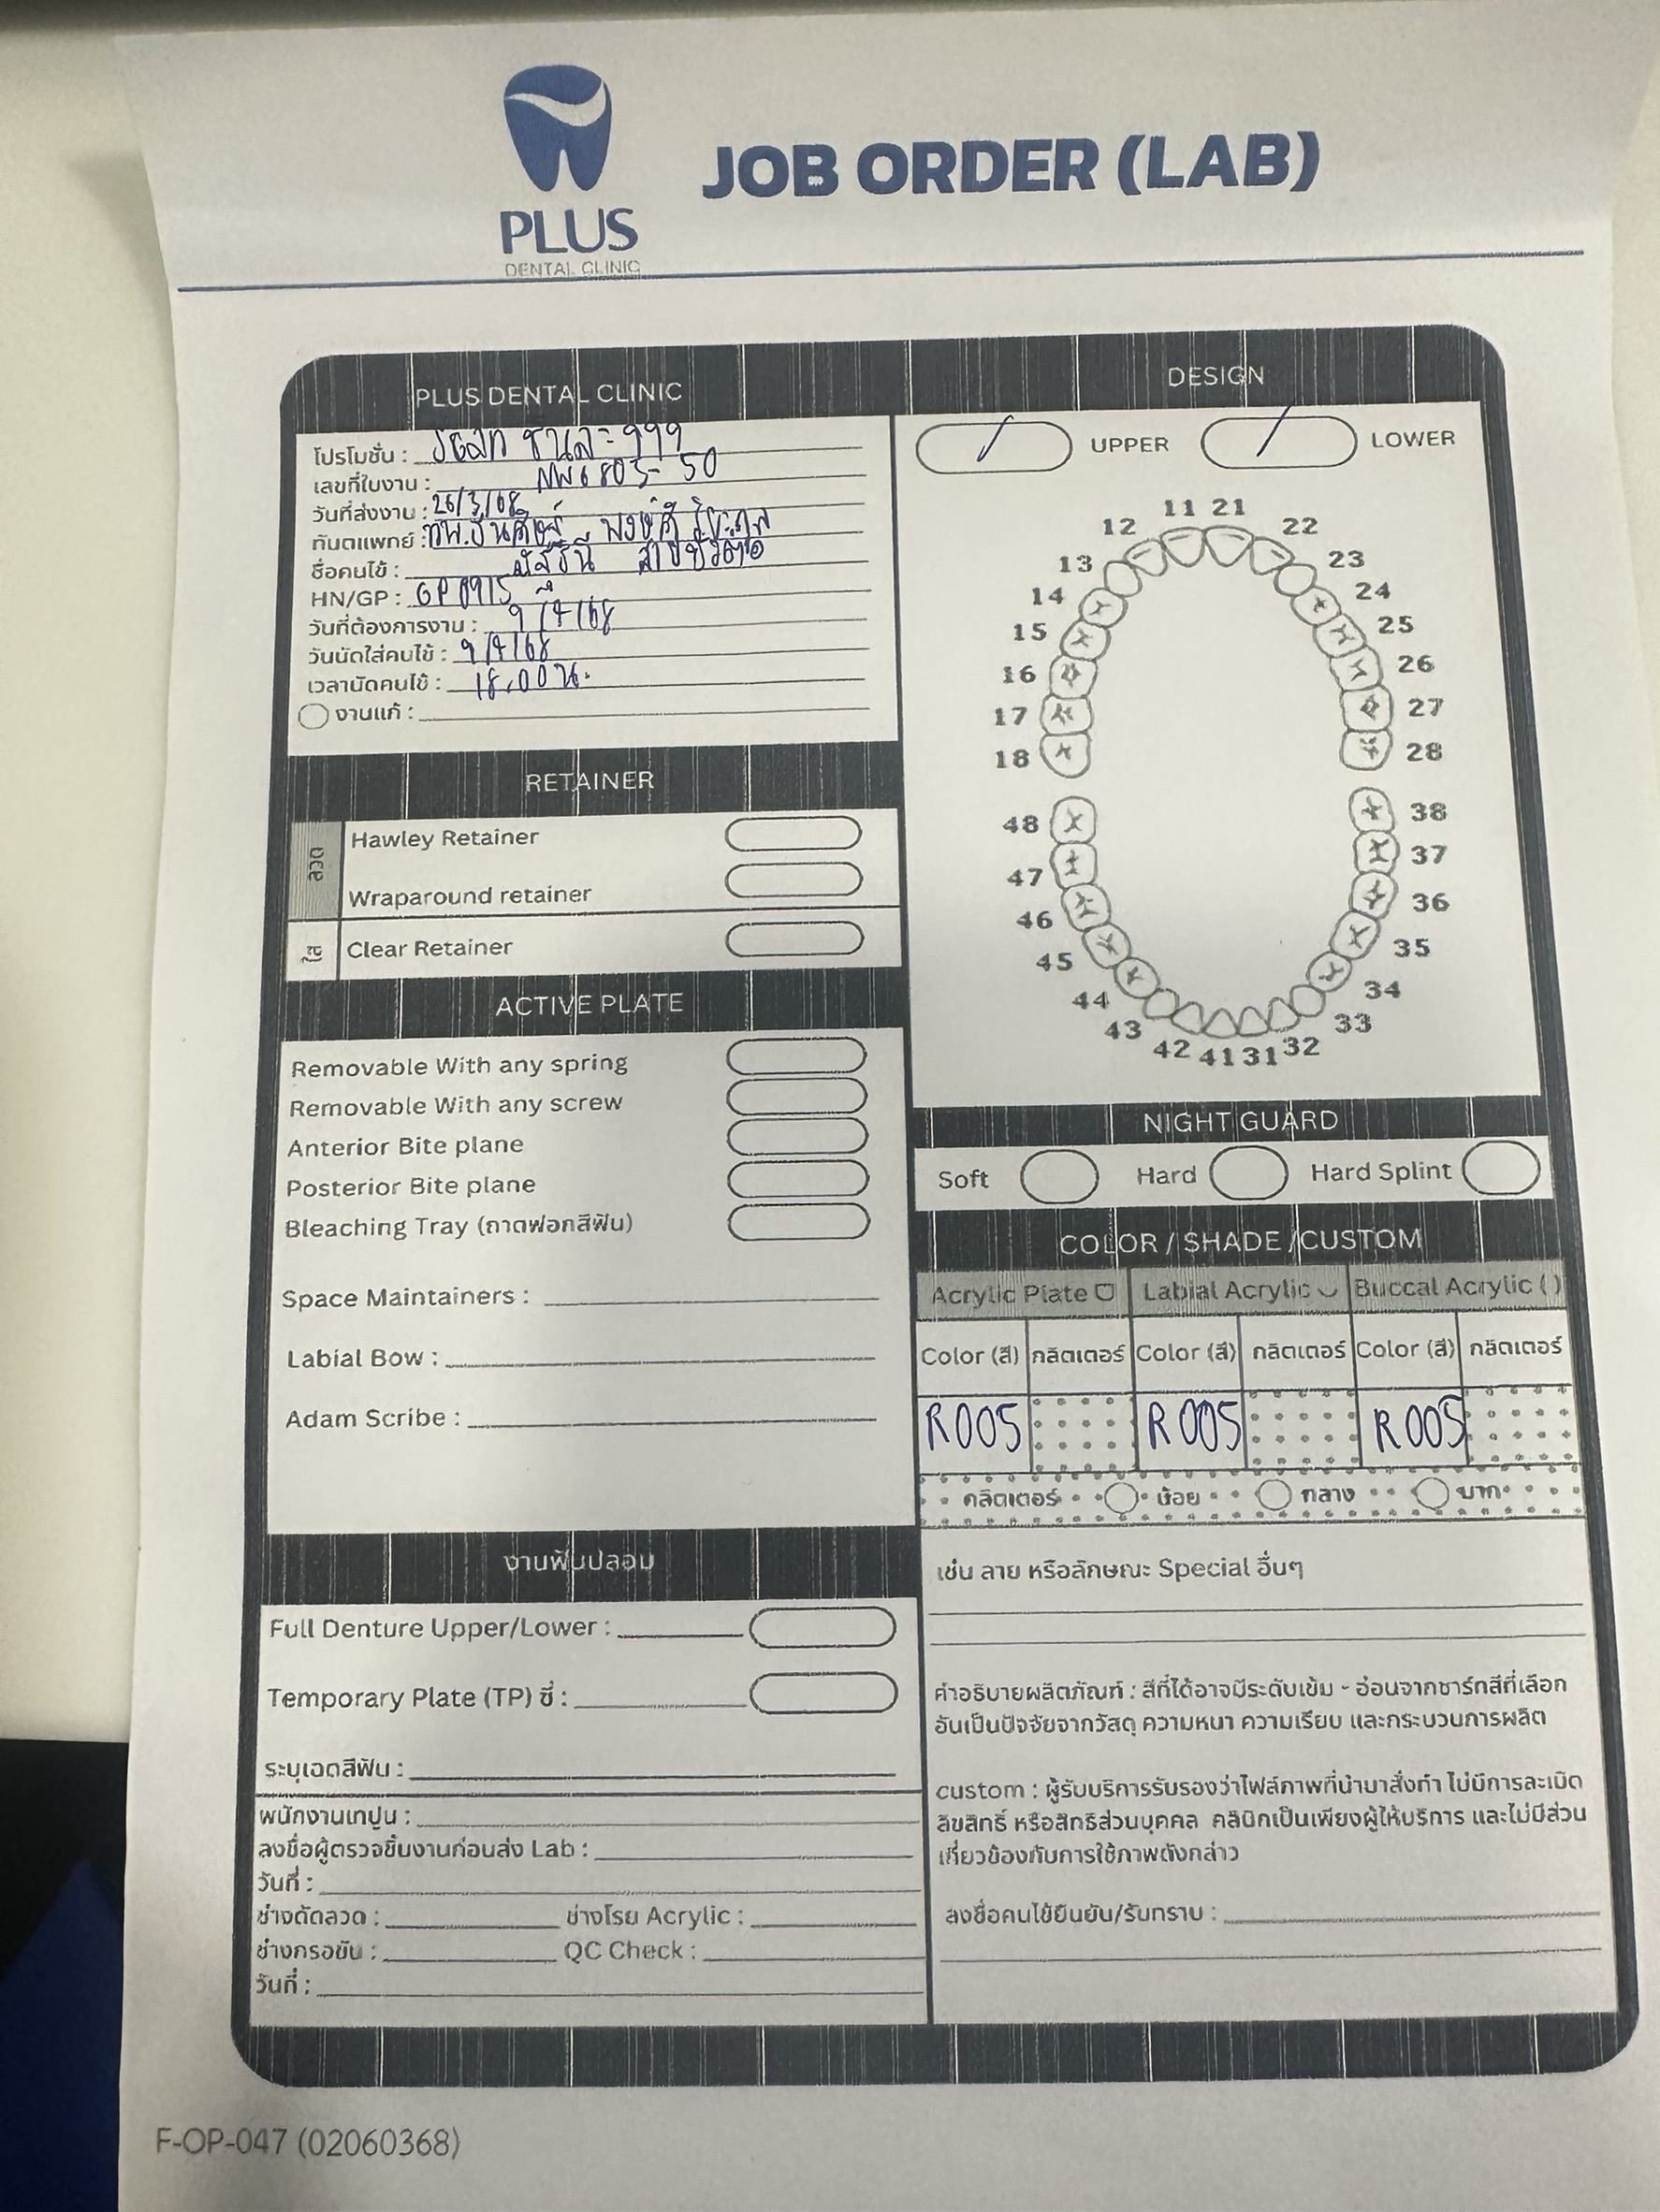 PLUS
DENTAL CLINIC
JOB ORDER (LAB)
PLUS DENTAL CLINIC
โปรโมชั่น : ชิ้นละ 999
เลขที่ใบงาน : NW6803-50
วันที่ส่งงาน : 26/3/68
ทันตแพทย์ : ทพ.
ชื่อคนไข้ :
HN/GP : GP8915
วันที่ต้องการงาน : 9/4/68
วันนัดใส่คนไข้ : 9/4/68
เวลานัดคนไข้ : 18.00 น.
งานแก้ :
RETAINER
ลวด
Hawley Retainer
Wraparound retainer
ใส
Clear Retainer
ACTIVE PLATE
Removable With any spring
Removable With any screw
Anterior Bite plane
Posterior Bite plane
Bleaching Tray (ถาดฟอกสีฟัน)
Space Maintainers :
Labial Bow :
Adam Scribe :
งานฟันปลอม
Full Denture Upper/Lower :
Temporary Plate (TP) ซี่ :
ระบุเฉดสีฟัน :
พนักงานเทปูน :
ลงชื่อผู้ตรวจชิ้นงานก่อนส่ง Lab :
วันที่ :
ช่างดัดลวด : ช่างโรย Acrylic :
ช่างกรอขัน : QC Check :
วันที่ :
DESIGN
/ UPPER / LOWER
11 21
12 22
13 23
14 24
15 25
16 26
17 27
18 28
48 38
47 37
46 36
45 35
44 34
43 33
42 41 31 32
NIGHT GUARD
Soft Hard Hard Splint
COLOR / SHADE /CUSTOM
Acrylic Plate Labial Acrylic Buccal Acrylic ( )
Color (สี) กลิตเตอร์ Color (สี) กลิตเตอร์ Color (สี) กลิตเตอร์
R005 R005 R005
กลิตเตอร์ น้อย กลาง มาก
เช่น ลาย หรือลักษณะ Special อื่นๆ
คำอธิบายผลิตภัณฑ์ : สีที่ได้อาจมีระดับเข้ม - อ่อนจากชาร์ทสีที่เลือก
อันเป็นปัจจัยจากวัสดุ ความหนา ความเรียบ และกระบวนการผลิต
custom : ผู้รับบริการรับรองว่าไฟล์ภาพที่นำมาสั่งทำ ไม่มีการละเมิด
ลิขสิทธิ์ หรือสิทธิส่วนบุคคล คลินิกเป็นเพียงผู้ให้บริการ และไม่มีส่วน
เกี่ยวข้องกับการใช้ภาพดังกล่าว
ลงชื่อคนไข้ยืนยัน/รับทราบ :
F-OP-047 (02060368)